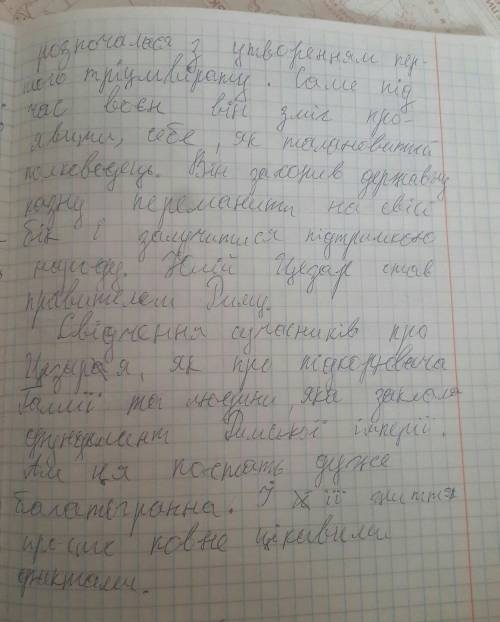 розпочалася з утворенням пер-
шого тріумвірату. Саме під
час воєн він зміг про-
явити, себе, як талановитий
полководець. Він захопив державну
казну переманити на свій
бік і залучитися підтримкою
народу. Юлій Цезар став
правителем Риму.
Свідчення сучасників про
Цезаря, як про підкорювача
Галлії та людини, яка заклала
фундамент Римської імперії.
Але ця постать дуже
багатогранна. І її життя
повне цікавими
фактами.